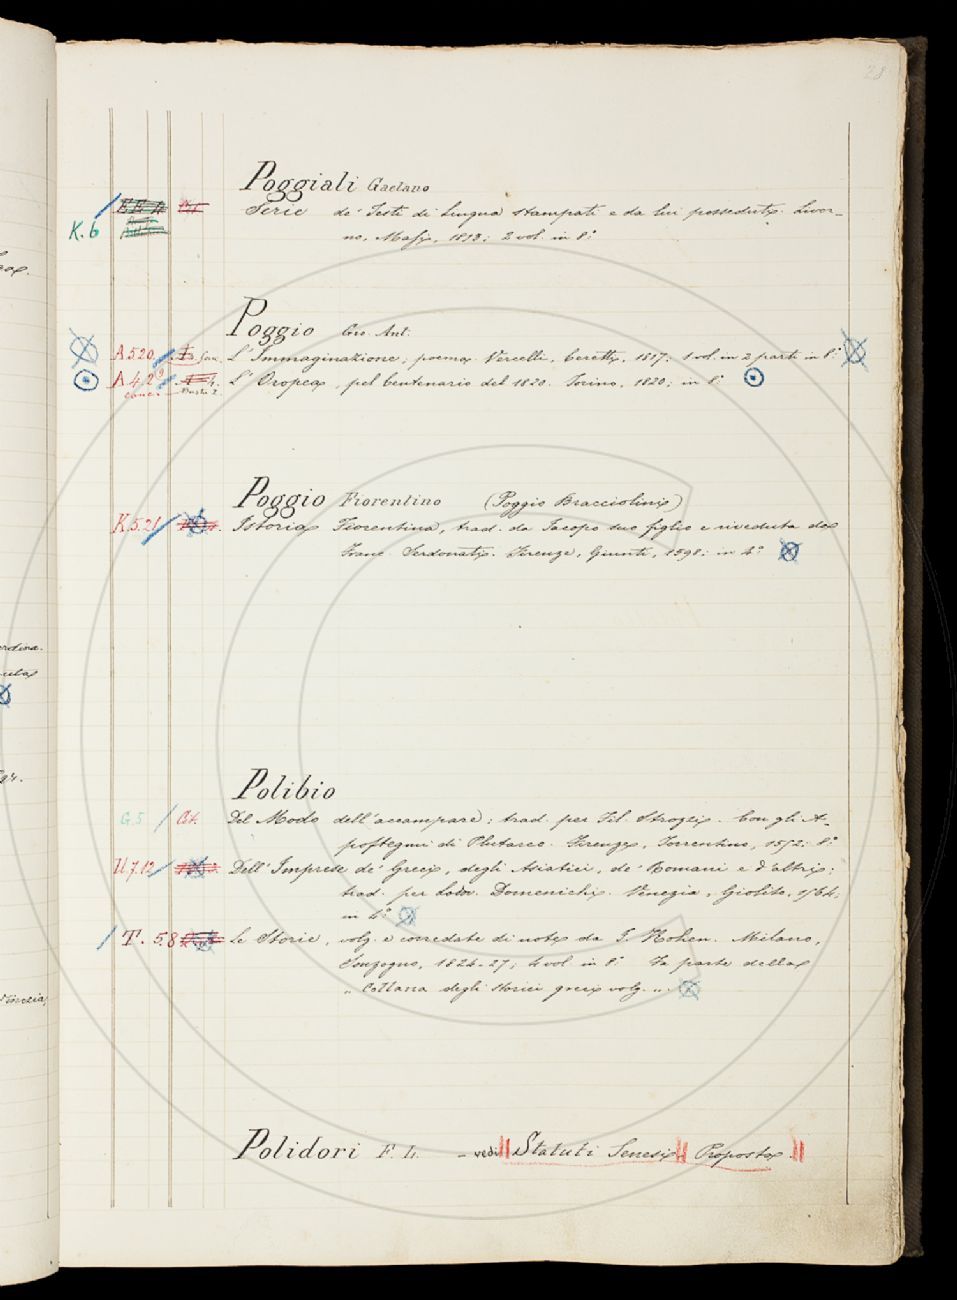 28
Poggiali Gaetano
K. 6 Serie de' Testi di Lingua stampati e da lui posseduti. Livor-
no, Masi, 1813; 2 vol. in 8.°
Poggio Gio. Ant.
A 520 L'Immaginazione, poema. Vercelli, Ceretti, 1817; 1 vol. in 2 parti in 8.°
A 42 L'Oropea, pel Centenario del 1820. Torino, 1820; in 8.°
Busta 2.
Poggio Fiorentino (Poggio Bracciolini)
K. 521 Istoria Fiorentina, trad. da Jacopo suo figlio e riveduta da
Franc. Serdonati. Firenze, Giunti, 1598; in 4.°
Polibio
G. 5 Cit. Del Modo dell'accampare; trad. per Fil. Strozzi. Con gli A-
poftegmi di Plutarco. Firenze, Torrentino, 1552; 8.°
U 7.12 Dell'Imprese de' Greci, degli Asiatici, de' Romani e d'altri;
trad. per Lod. Domenichi. Venezia, Giolito, 1564,
in 4.°
T. 58 Le Storie, volg. e corredate di note da I. Kohen. Milano,
Sonzogno, 1824-27; 4 vol. in 8.° Fa parte della
„ Collana degli storici greci volg. „.
Polidori F. L. – vedi Statuti Senesi Proposta